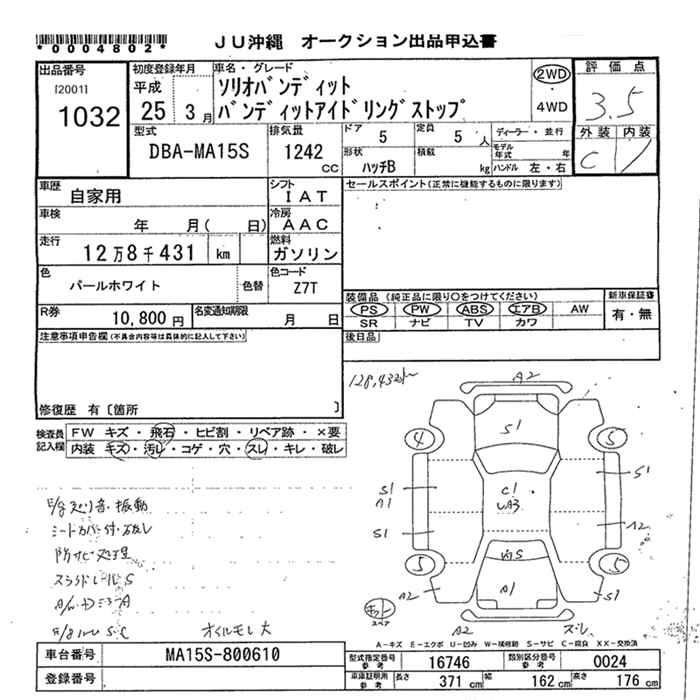 *0004802*
JU沖縄 オークション出品申込書
出品番号
[2001]
1032
初度登録年月
平成
25 3月
車名・グレード
ソリオバンディット
バンディットアイドリングストップ
2WD
4WD
評価点
3.5
外装 内装
C
型式
DBA-MA15S
排気量
1242 CC
ドア 5
定員 5 人
形状 ハッチB
積載 kg
ディーラー・並行
モデル年式 年
ハンドル 左・右
車歴 自家用
シフト IAT
車検 年 月( 日)
冷房 AAC
走行 12万8千431 km
燃料 ガソリン
色 パールホワイト 色替
色コード Z7T
セールスポイント(正常に機能するものに限ります)
R券 10,800円
名変通知期限 月 日
装備品(純正品に限り○をつけてください)
PS PW ABS エアB AW
SR ナビ TV カワ
新車保証書
有・無
注意事項申告欄(不具合内容等は具体的に記入して下さい)
後日品
修復歴 有〔箇所 〕
検査員記入欄
FW キズ・飛石・ヒビ割・リペア跡・×要
内装 キズ・汚レ・コゲ・穴・スレ・キレ・破レ
128,432km
A2
S1
4
5
S1
A1
S1
C1
S1
A2
5
5
A1
A2
S1
A2
スペア
シートカバー付
防サビ処理
オイルモレ大
A-キズ E-エクボ U-凹み W-補修跡 S-サビ C-腐食 XX-交換済
車台番号 MA15S-800610
登録番号
型式指定番号参考 16746
類別区分番号参考 0024
車庫証明用参考 長さ 371 cm 幅 162 cm 高さ 176 cm